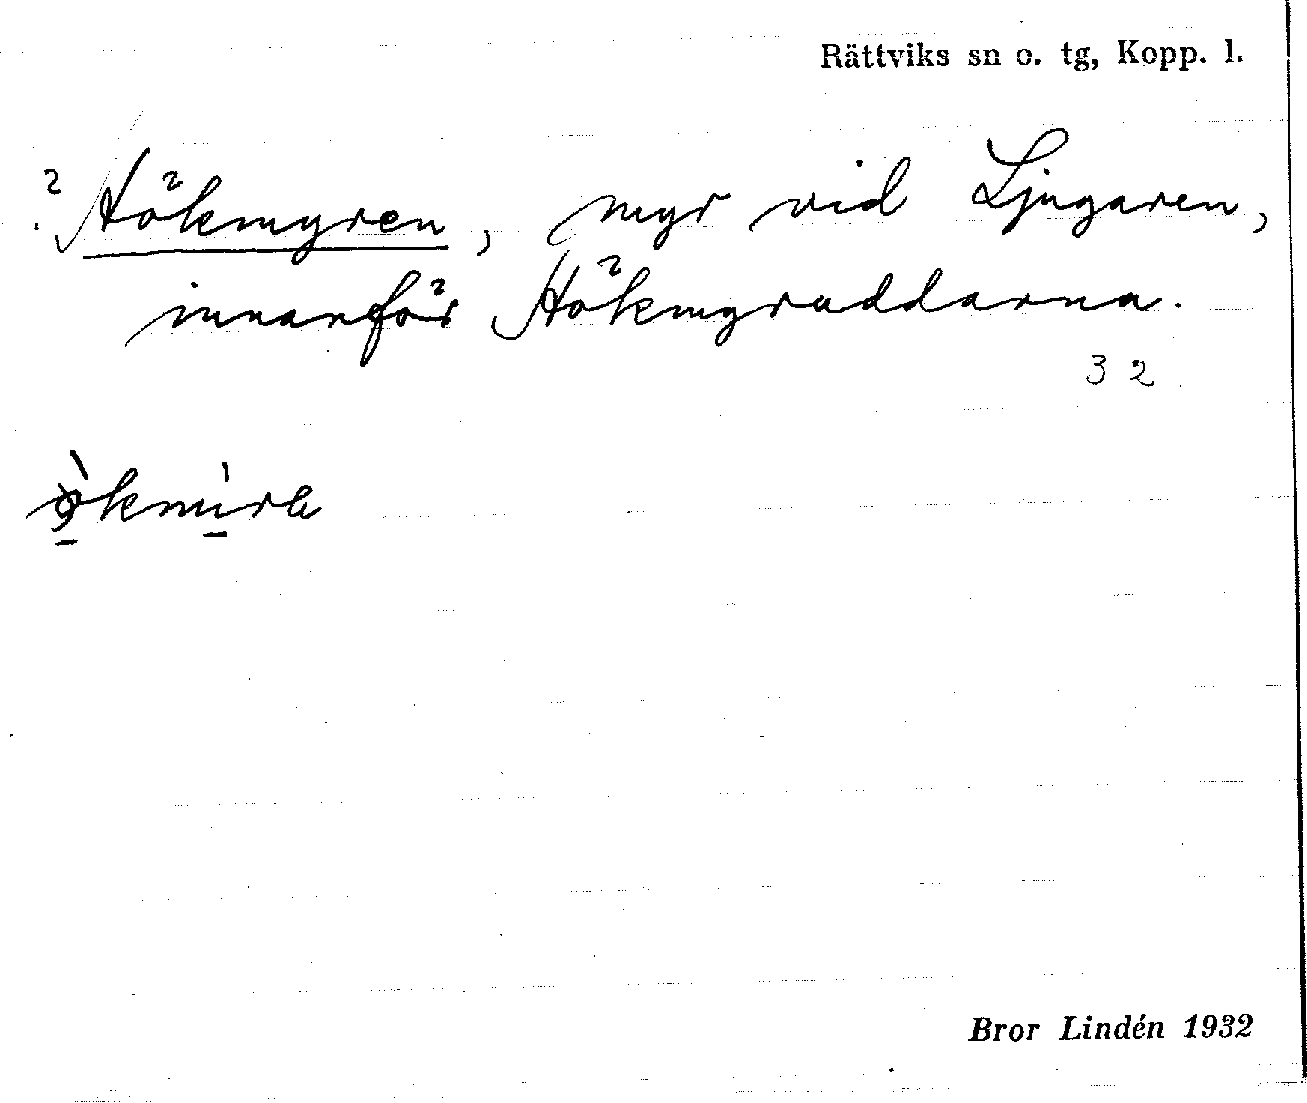 Rättviks sn o. tg, Kopp. l.
? Hökmyren, myr vid Ljugaren,
innanför Hökmyruddarna.
32
Bror Lindén 1932